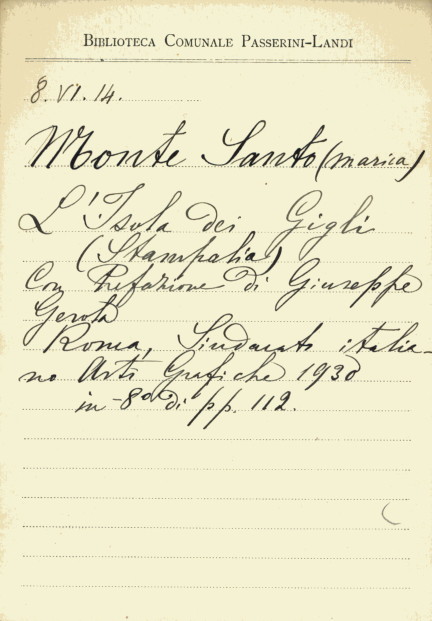 BIBLIOTECA COMUNALE PASSERINI-LANDI
8.VI.14.
Monte Santo (marica)
L'Isola dei Gigli
(Stampalia)
Con Prefazione di Giuseppe
Gerola
Roma, Sindacato italia-
no Arti Grafiche 1930
in-8° di pp. 112.